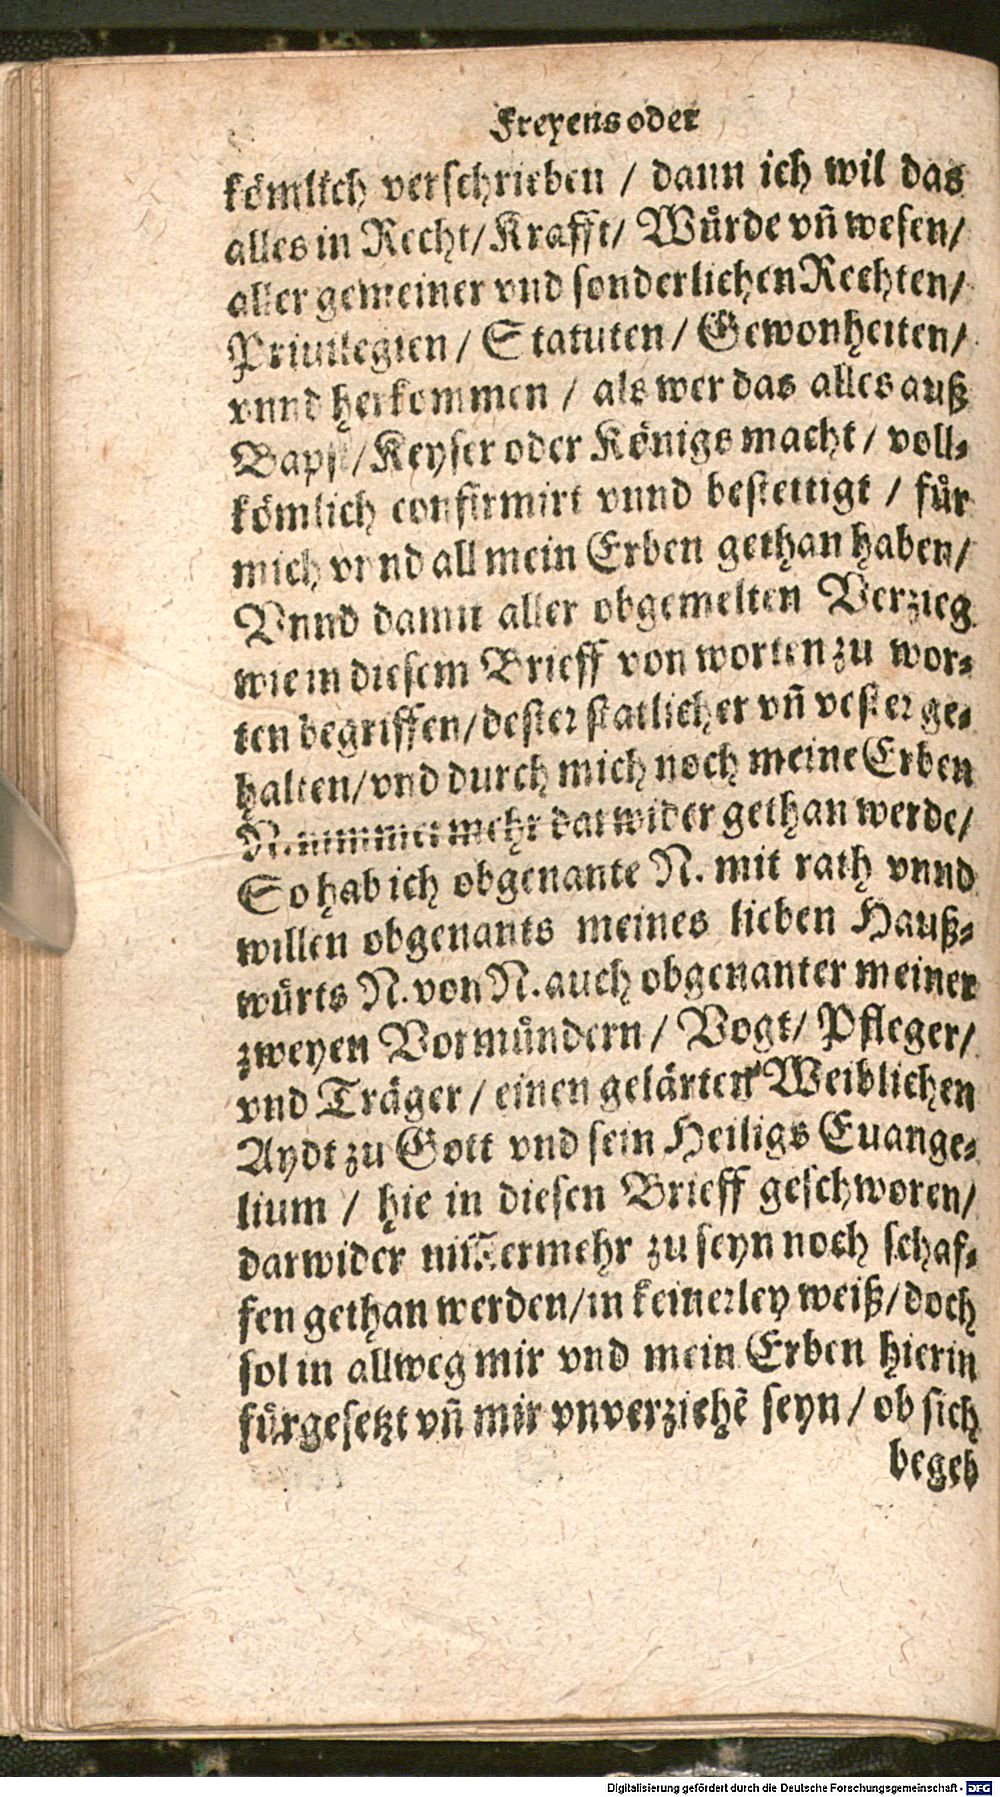 Freyens oder
kömlich verschrieben / dann ich wil das
alles in Recht/ Krafft/ Wuͤrde vñ wesen/
aller gemeiner vnd sonderlichen Rechten/
Priuilegien / Statuten / Gewonheiten /
vnnd herkommen / als wer das alles auß
Bapst/ Keyser oder Königs macht / voll-
kömlich confirmirt vnnd bestettigt / fuͤr
mich vnnd all mein Erben gethan haben/
Vnnd damit aller obgemelten Verzieg
wie in diesem Brieff von worten zu wor-
ten begriffen/ dester statlicher vñ vester ge-
halten/ vnd durch mich noch meine Erben
N. nimmer mehr darwider gethan werde/
So hab ich obgenante N. mit rath vnnd
willen obgenants meines lieben Hauß-
wuͤrts N. von N. auch obgenanter meiner
zweyen Vormuͤndern / Vogt/ Pfleger/
vnd Träger / einen gelärten Weiblichen
Aydt zu Gott vnd sein Heiligs Euange-
lium / hie in diesen Brieff geschworen/
darwider nim̃ermehr zu seyn noch schaf-
fen gethan werden/ in keinerley weiß/ doch
sol in allweg mir vnd mein Erben hierin
fuͤrgesetzt vñ mir vnverziehẽ seyn / ob sich
begeb
Digitalisierung gefördert durch die Deutsche Forschungsgemeinschaft - DFG